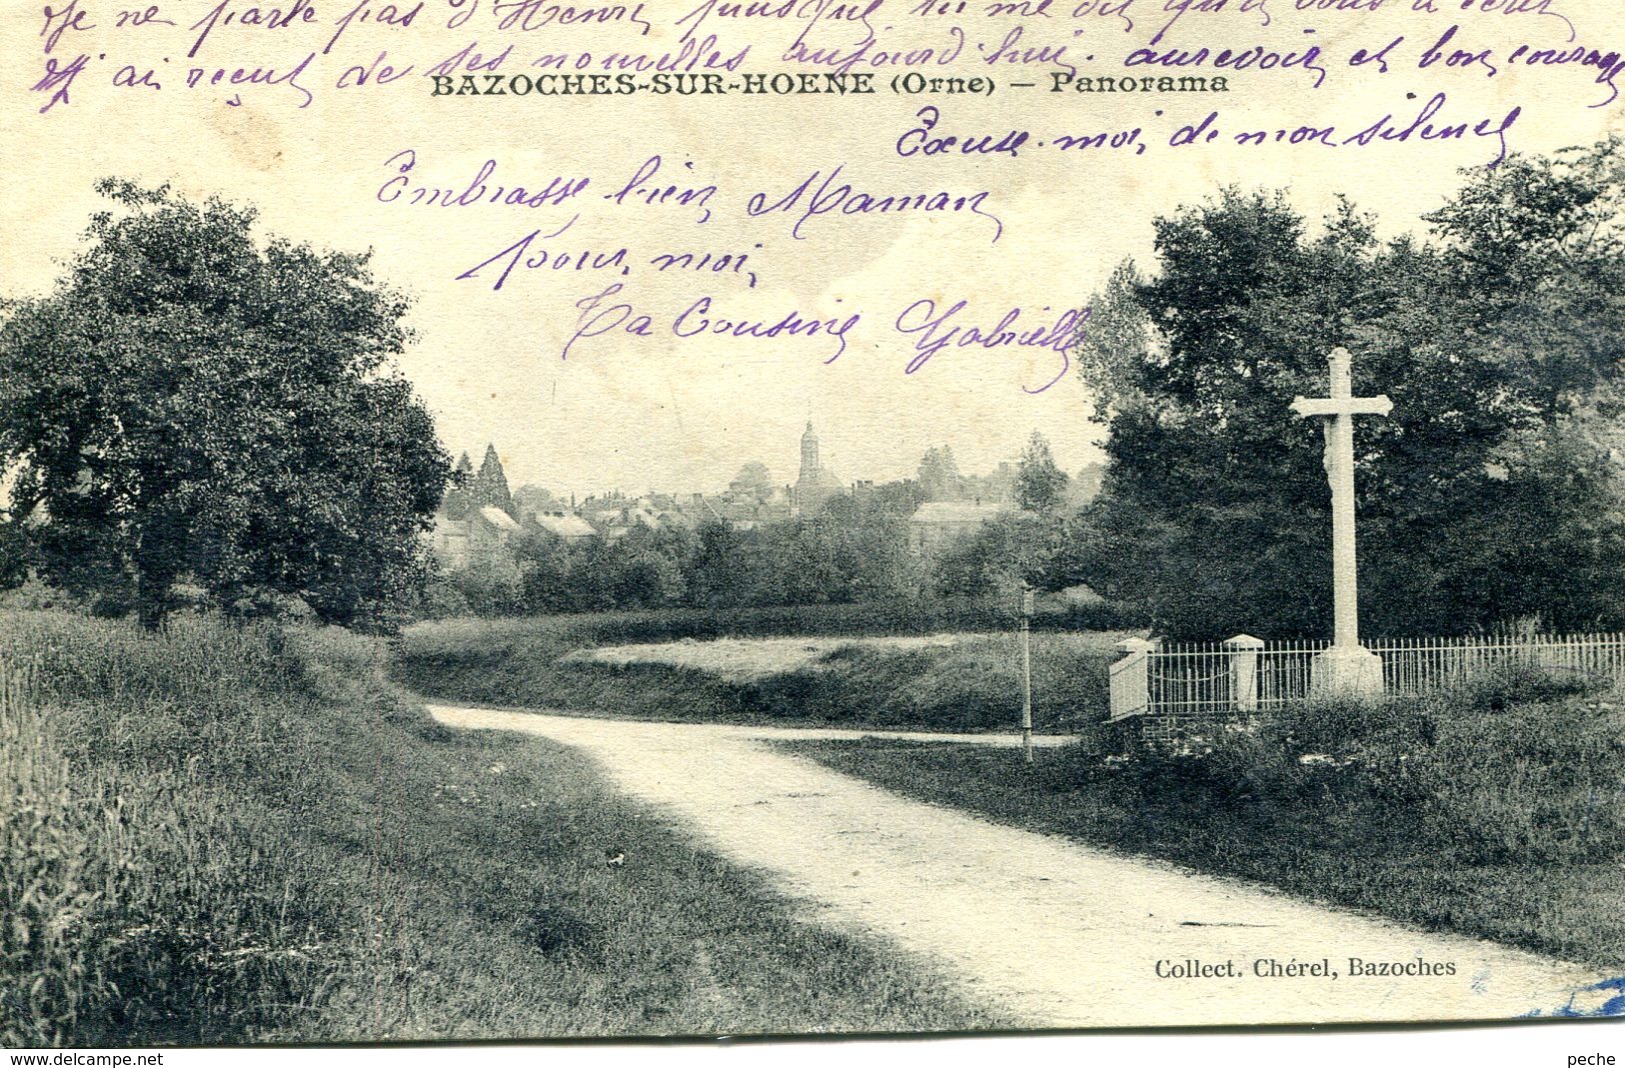 Je ne parle pas d'Henri puisque tu me dis qu'il vous a écrit
J'ai reçut de ses nouvelles aujourd'hui. aurevoir et bon courage
BAZOCHES-SUR-HOENE (Orne) — Panorama
Excuse-moi de mon silence
Embrasse bien Maman
pour moi
Ta Cousine Gabrielle
Collect. Chérel, Bazoches
www.delcampe.net
peche